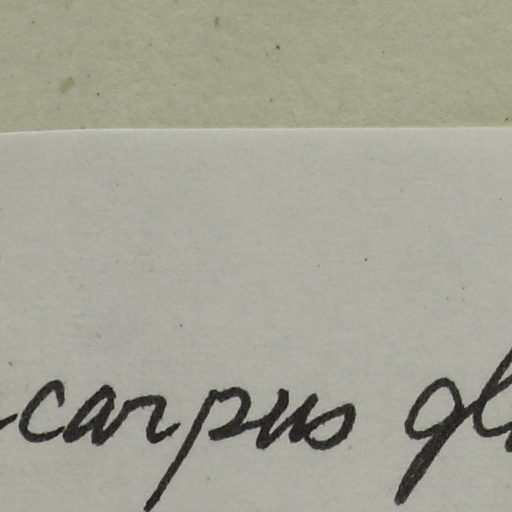 carpus gl